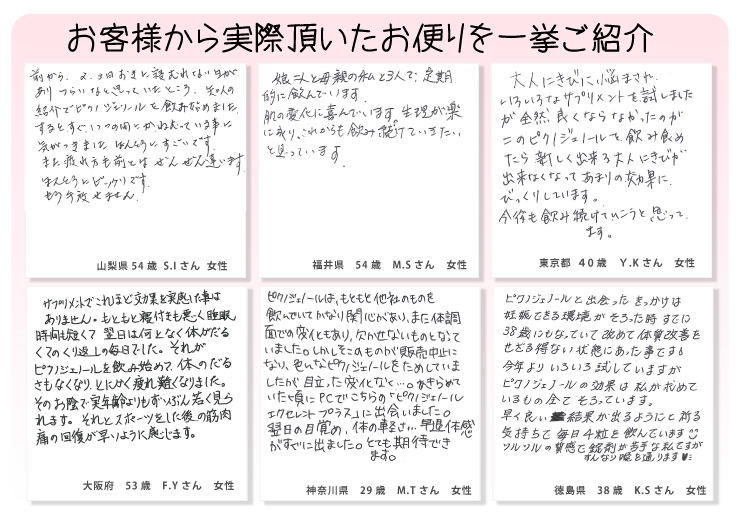 お客様から実際頂いたお便りを一挙ご紹介
前から、2、3日おきと読むれない日が
ありつらいなと思っていたところ、知人の
紹介でピクノジェノールを飲みはじめました。
するとすぐいつの間にかねむっている事に
気がつきました。ほんとうにすごいです。
また疲れ方も前とは ぜんぜん違います。
ほんとうにビックリです。
もう手放せません。
山梨県54歳 S.Iさん 女性
娘二人と母親の私と3人で、定期
的に飲んでいます。
肌の変化に喜んでいます。生理が楽
になり、これからも飲み続けていきたい
と思っています。
福井県 54歳 M.Sさん 女性
大人にきびに悩まされ
いろいろなサプリメントを試しました
が全然、良くならなかったのが
このピクノジェノールを飲み始め
たら新しく出来る大人にきびが
出来なくなってあまりの効果に
びっくりしています。
今後も飲み続けていこうと思って
ます。
東京都 40歳 Y.Kさん 女性
サプリメントでこれほど効果を実感した事は
ありません。もともと寝付きも悪く睡眠
時間も短くて 翌日は何となく体がだる
くてのくり返しの毎日でした。それが
ピクノジェノールを飲み始めて、体のだる
さもなくなり、とにかく疲れ難くなりました。
そのお陰で実年齢よりもずいぶん若く見ら
れます。それとスポーツをした後の筋肉
痛の回復が早いように感じます。
大阪府 53歳 F.Yさん 女性
ピクノジェノールは、もともと他社のものを
飲んでいてかなり関心があり、また体調
面での変化もあり、欠かせないものとなって
いました。しかしそこのものが販売中止に
なり、色んなピクノジェノールをためしていま
したが目立った変化なと…。あきらめて
いた頃にPCでこちらの「ピクノジェノール
エクセレントプラス」に出会いました。
翌日の目覚め、体の軽さ…早速体感
がすぐに出ました。とても期待でき
ます。
神奈川県 29歳 M.Tさん 女性
ピクノジェノールと出会ったきっかけは
妊娠できる環境がそろった時すでに
38歳にもなっていて改めて体質改善を
せざる得ない状態にあった事です。
今年よりいろいろ試していますが
ピクノジェノールの効果は私が求めて
いるもの全てそろっています。
早く良い結果が出るようにと祈る
気持ちで毎日4粒を飲んでいます
ツルツルの質感で錠剤が苦手な私ですが
すんなり喉を通ります
徳島県 38歳 K.Sさん 女性